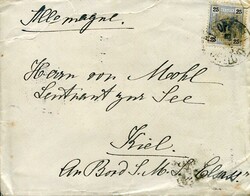 Allemagne.
25 25
Herrn von Moohl
Leutnant zur See
Kiel.
An Bord S.M.S. Elsass